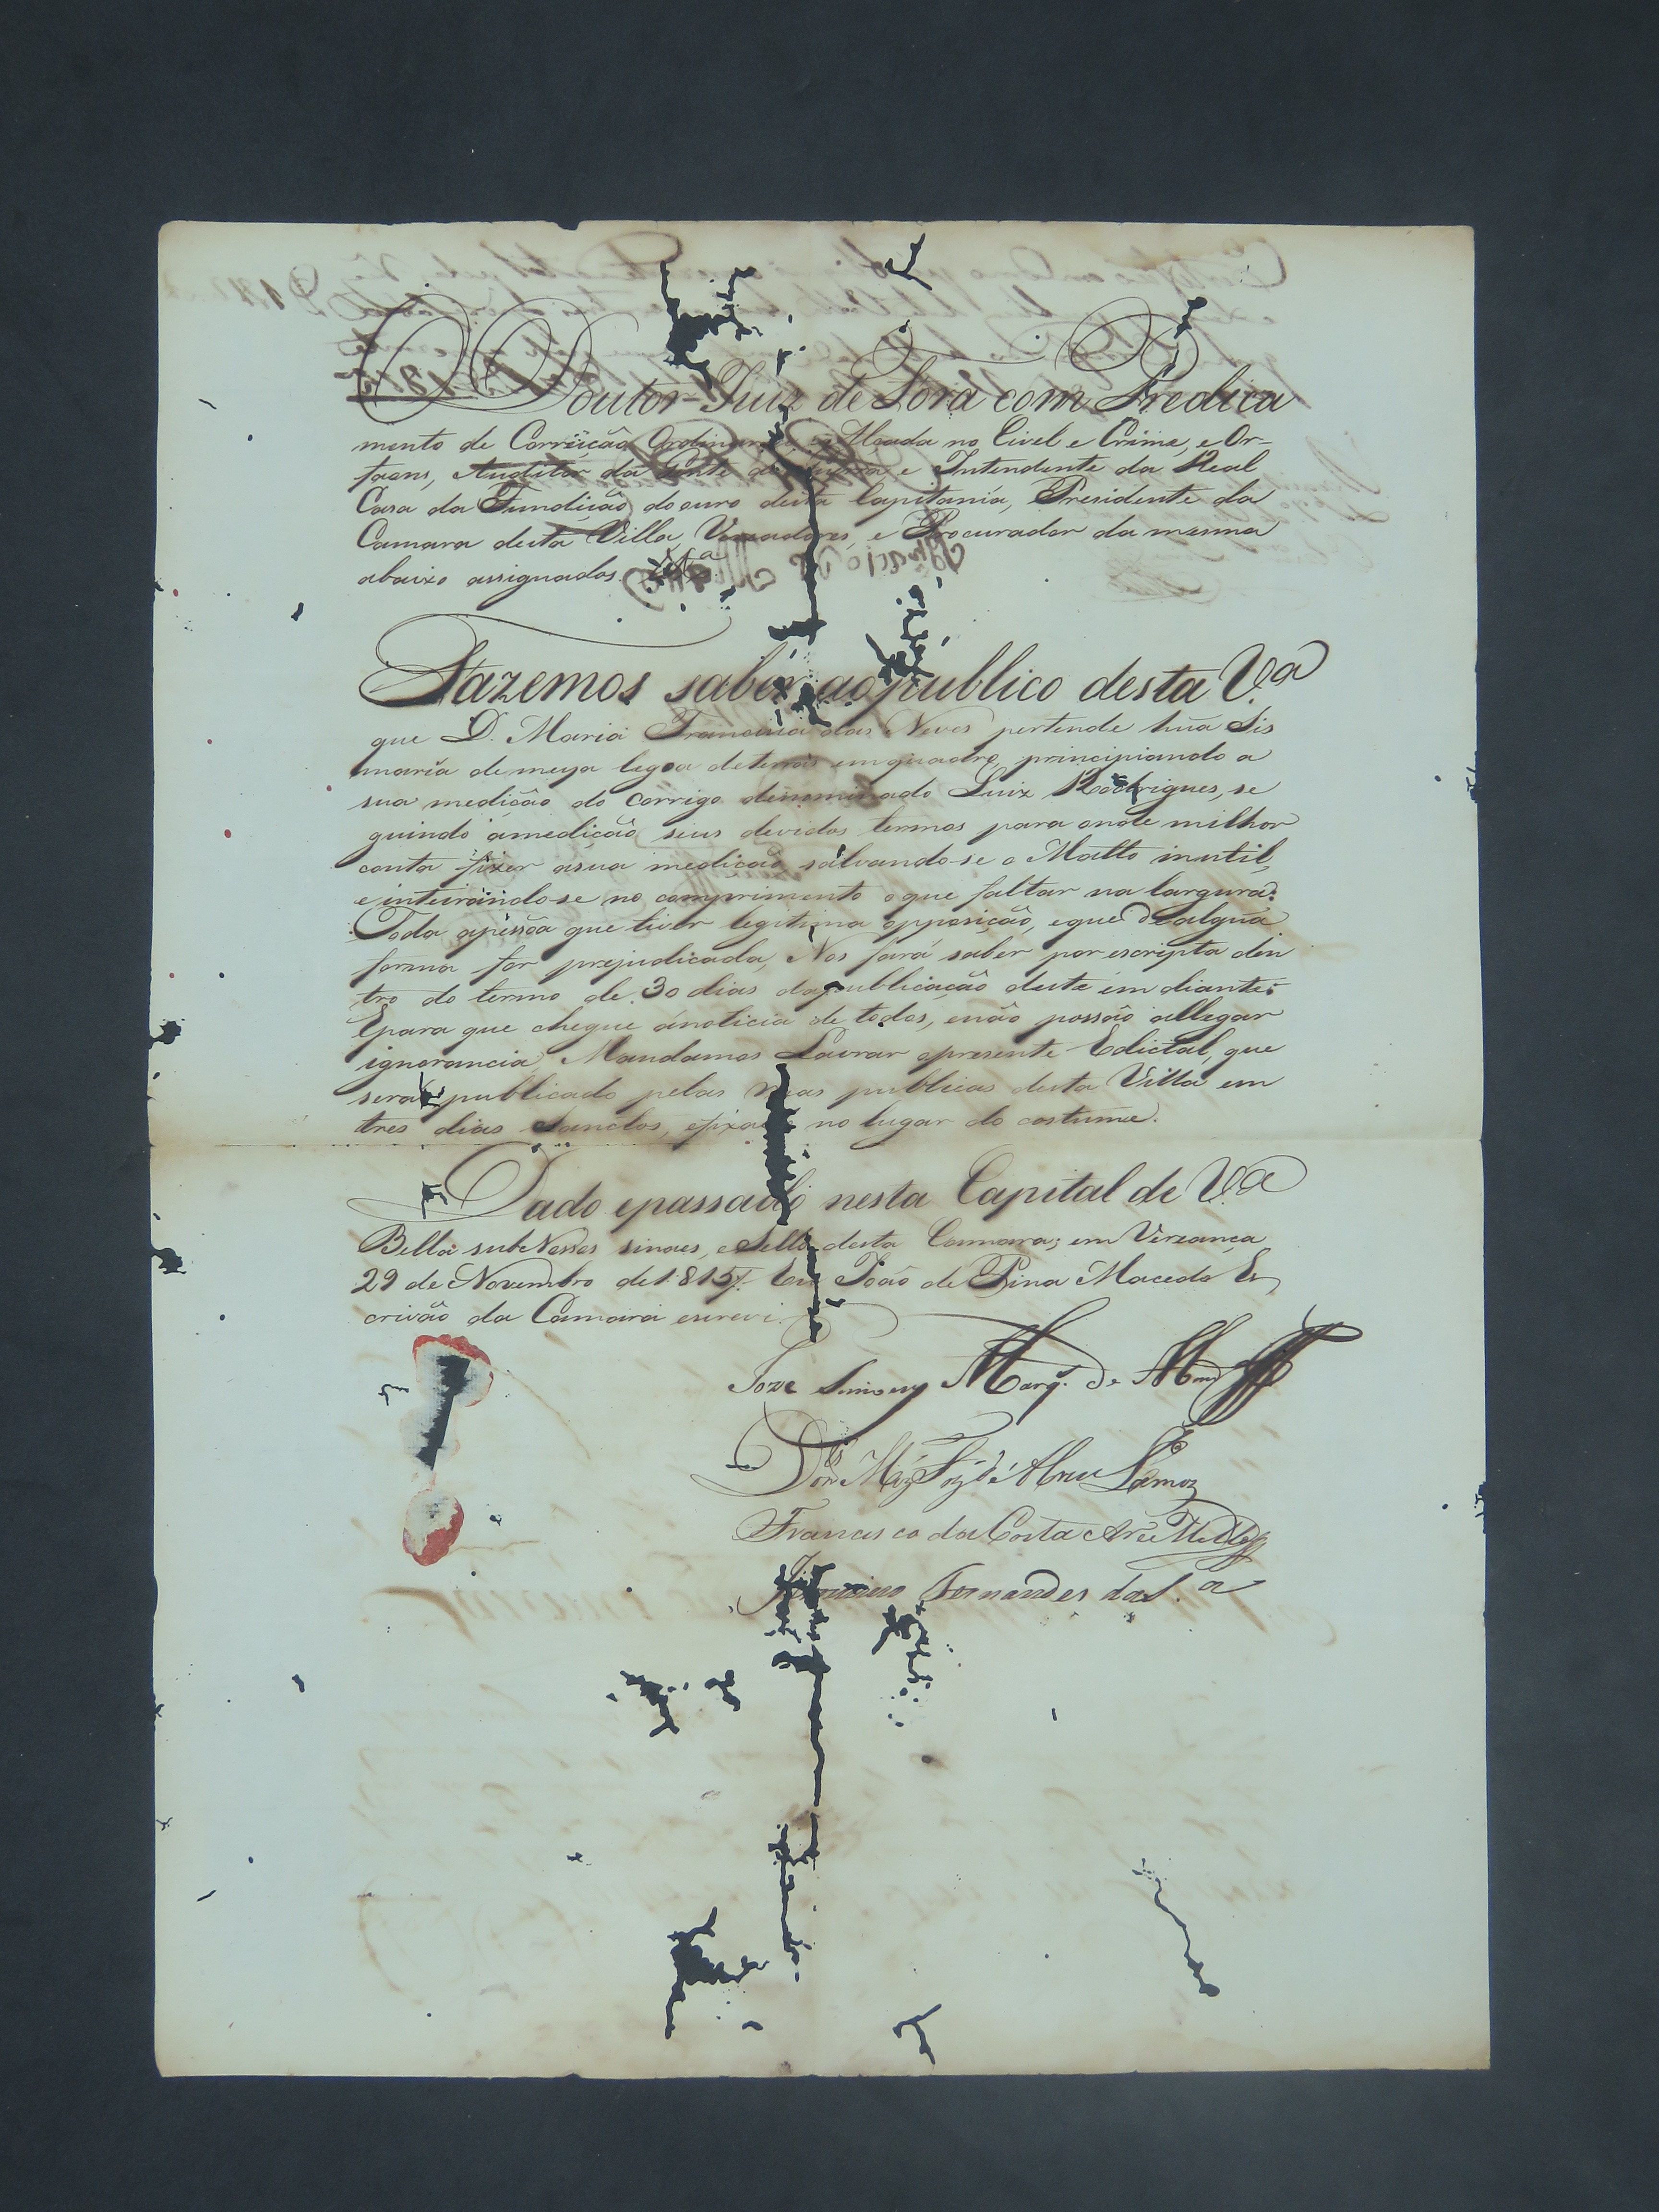 O Doutor Juiz de Fora com Predica
mento de Correição Ordinaria Alçada no Civel e Crime, e Or-
faons, Auditor da Gente de Guerra e Intendente da Real
Casa da Fundição do ouro desta Capitania, Presidente da
Camara desta Villa, Vereadores, e Procurador da mesma
abaixo assignados.
Fazemos saber ao publico desta V.a
que D. Maria Francisca das Neves pertende huã Sis
maria de meya legoa de terras em quadro, principiando a
sua medição do Corrigo denominado Luiz Rodrigues, se
guindo a medição seus devidos termos para onde milhor
conta fizer a sua medição salvando-se o Matto inutil,
e inteirando-se no comprimento o que faltar na largura:
Toda apessôa que tiver legitima opposição, e que de algua
forma for prejudicada, Nos fará saber por escripta den
tro do termo de 30 dias da publicação deste em diante:
E para que chegue á noticia de todos, e não possão allegar
ignorancia, Mandamos Lavrar o presente Edictal, que
será publicado pelas ruas publicas desta Villa em
tres dias Sanctos, e no lugar do costume.
Dado e passado nesta Capital de V.a
Bella sub Nossos sinaes, e Sello desta Camara; em Vereança
29 de Novembro de 1815. Eu João de Pina Macedo Es
crivão da Camara escrevi.
Joze Marq. de
de Abreu Lemos
Francisco da Costa
Fernandes da S.a